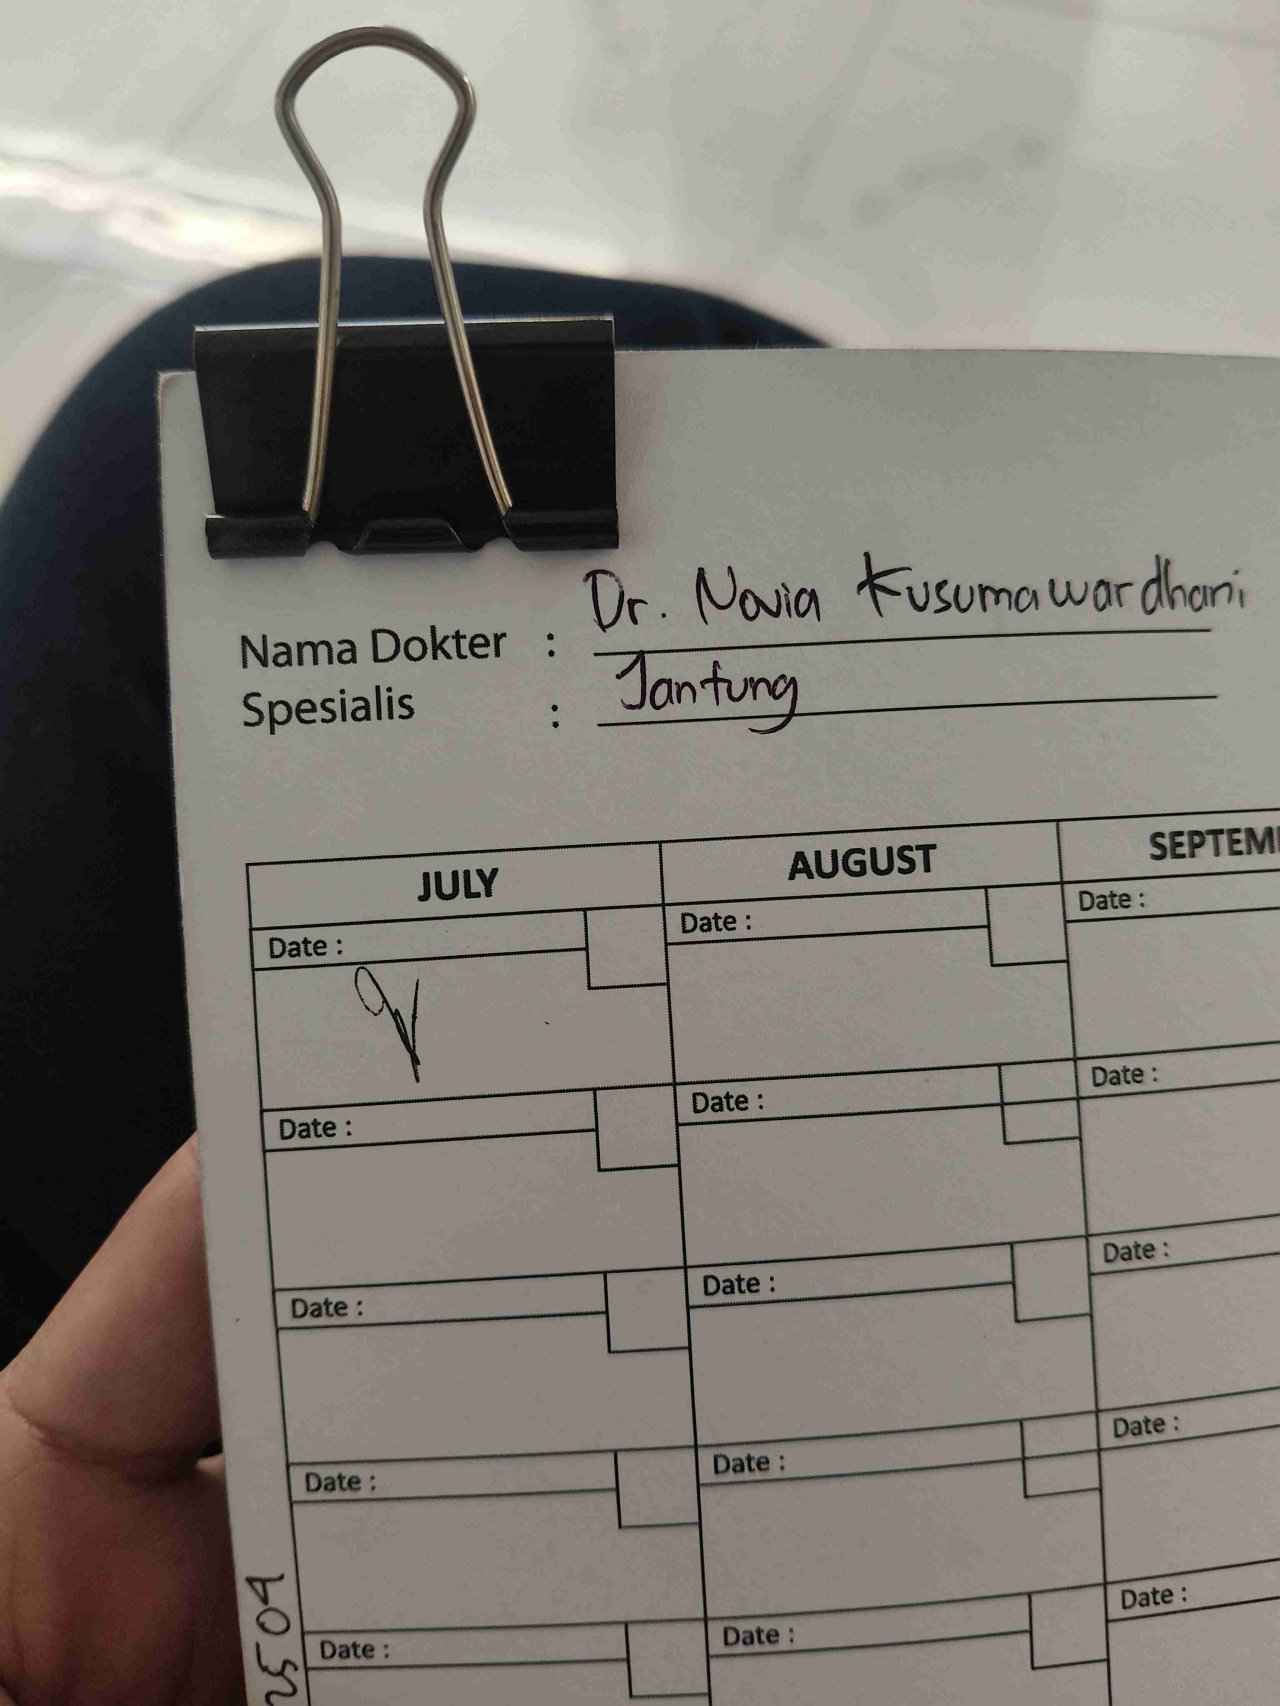 Dr. Novia Kusumawardhani
Nama Dokter :
Jantung
Spesialis :
JULY AUGUST
Date : Date : Date :
Date : Date : Date :
Date : Date : Date :
Date : Date : Date :
Date : Date : Date :